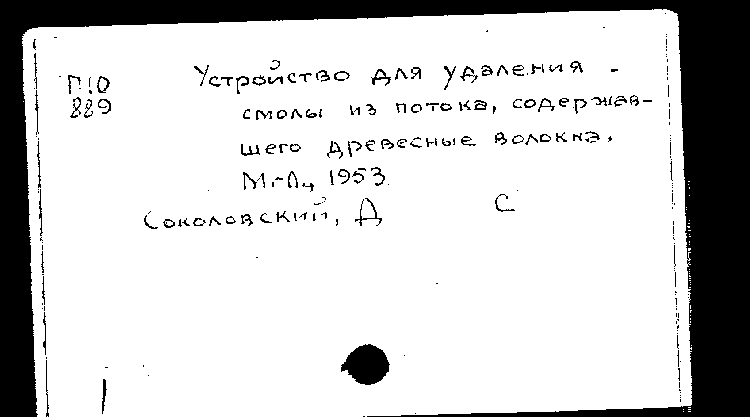 П10
889
Устройство для удаления
смолы из потока, содержав-
шего древесные волокна.
М.-Л., 1953
Соколовский, Д С